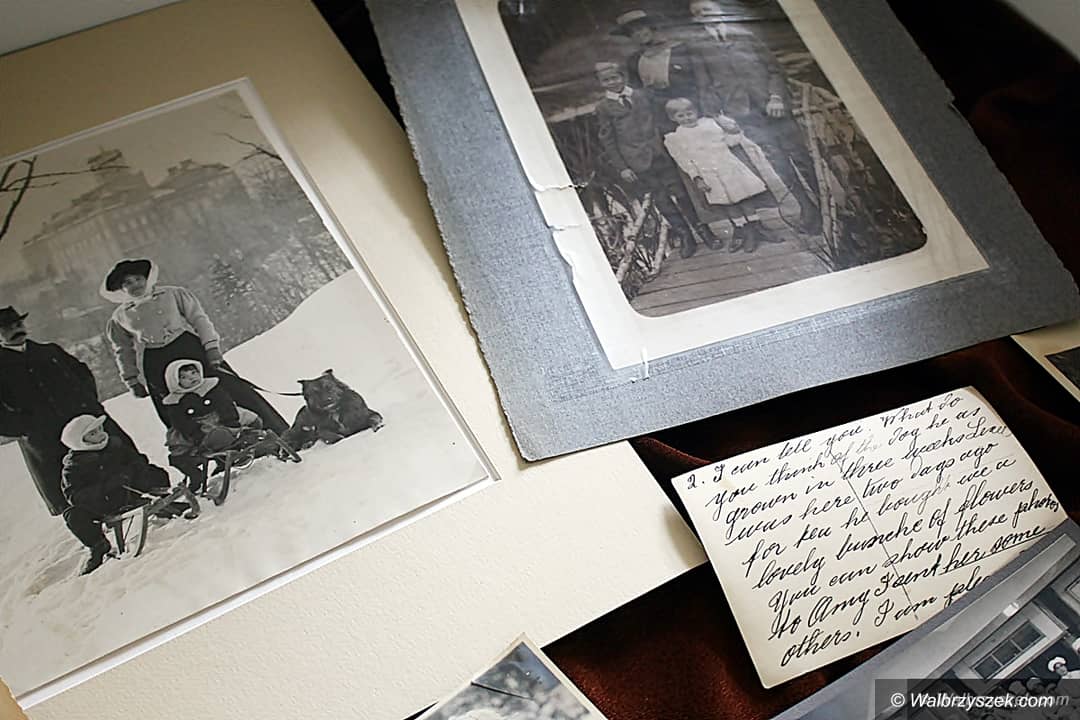 2. I can tell you. What do
you think of the Dog he as
grown in three weeks
was here two days ago
for tea he bought me a
lovely bunche of flowers
You can show these photos,
to Amy I sent her some
others. I am
© Walbrzyszek.com